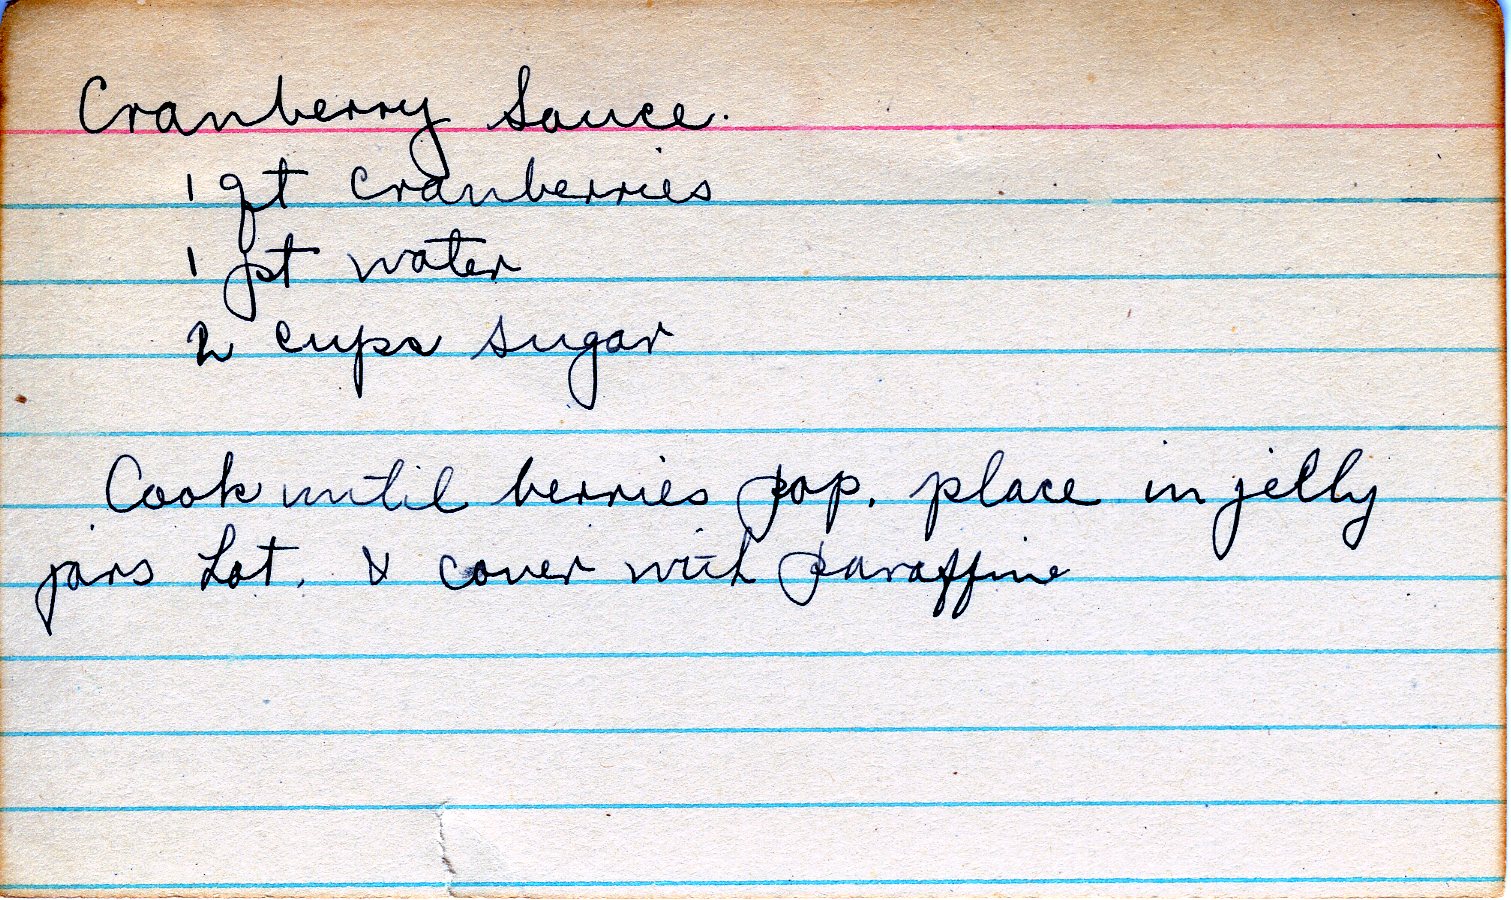 Cranberry Sauce.
1 qt cranberries
1 pt water
2 cups sugar
Cook until berries pop. place in jelly
jars hot. & cover with paraffine